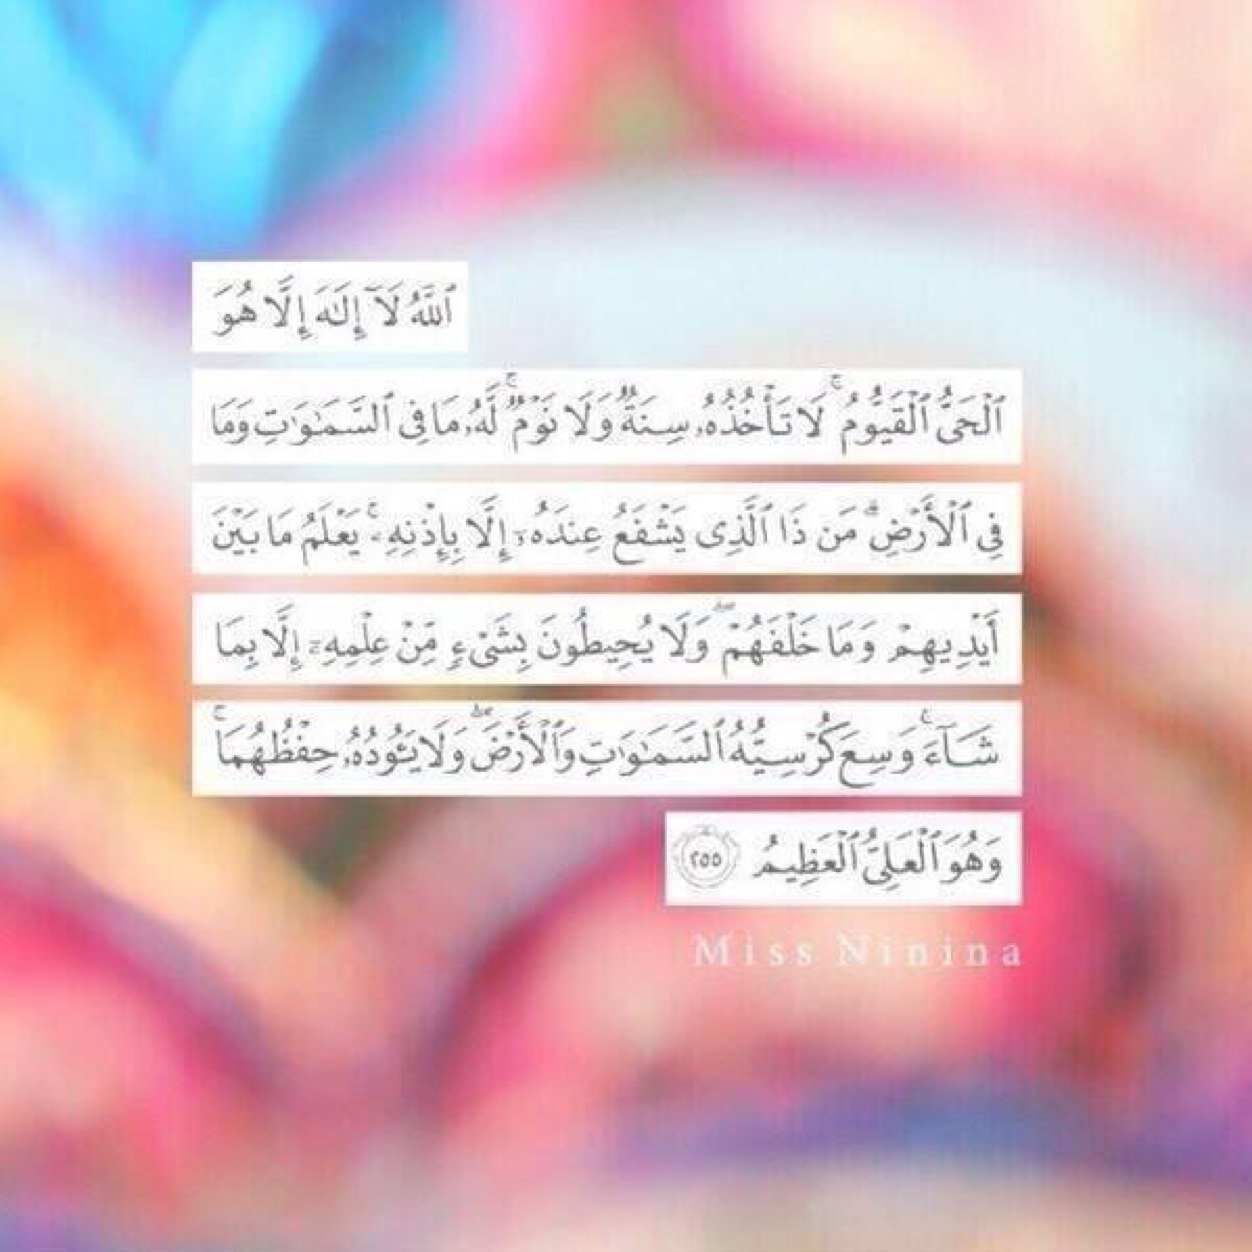 ٱللَّهُ لَآ إِلَـٰهَ إِلَّا هُوَ
ٱلْحَىُّ ٱلْقَيُّومُ ۚ لَا تَأْخُذُهُۥ سِنَةٌ وَلَا نَوْمٌ ۚ لَّهُۥ مَا فِى ٱلسَّمَـٰوَٰتِ وَمَا
فِى ٱلْأَرْضِ ۗ مَن ذَا ٱلَّذِى يَشْفَعُ عِندَهُۥٓ إِلَّا بِإِذْنِهِۦ ۚ يَعْلَمُ مَا بَيْنَ
أَيْدِيهِمْ وَمَا خَلْفَهُمْ ۖ وَلَا يُحِيطُونَ بِشَىْءٍ مِّنْ عِلْمِهِۦٓ إِلَّا بِمَا
شَآءَ ۚ وَسِعَ كُرْسِيُّهُ ٱلسَّمَـٰوَٰتِ وَٱلْأَرْضَ ۖ وَلَا يَـُٔودُهُۥ حِفْظُهُمَا ۚ
وَهُوَ ٱلْعَلِىُّ ٱلْعَظِيمُ ٢٥٥
Miss Ninina